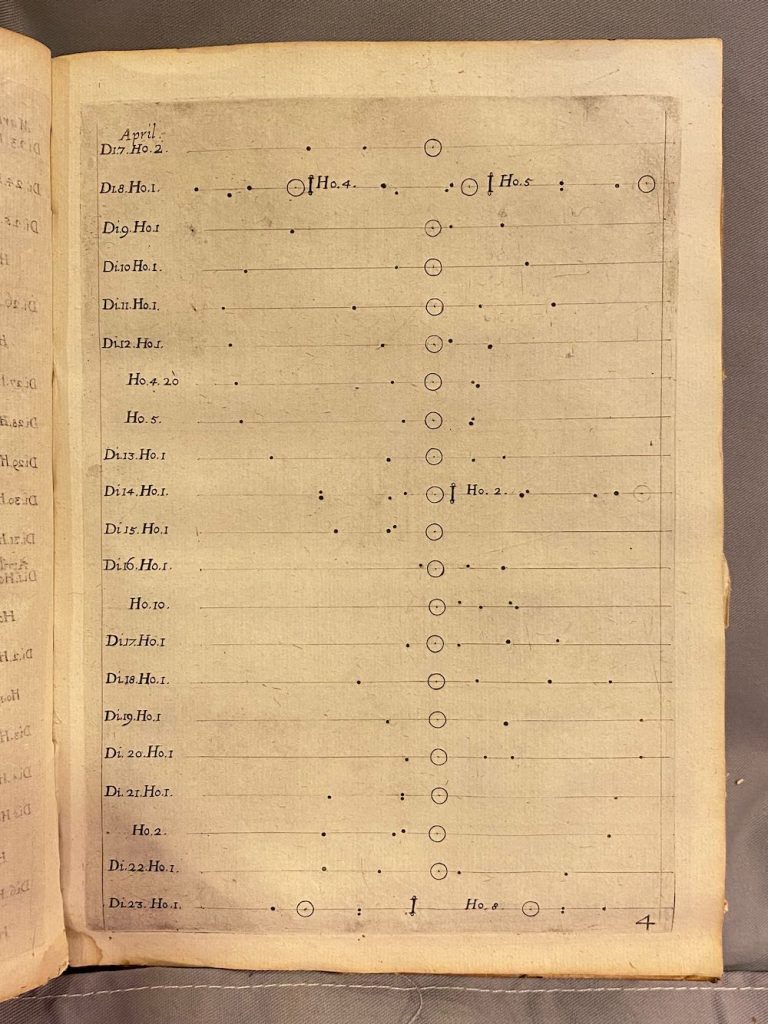 April.
Di.7.Ho.2.
Di.8.Ho.1. Ho.4. Ho.5
Di.9.Ho.1
Di.10.Ho.1.
Di.11.Ho.1.
Di.12.Ho.1.
Ho.4.20
Ho.5.
Di.13.Ho.1
Di.14.Ho.1. Ho.2.
Di.15.Ho.1
Di.16.Ho.1.
Ho.10.
Di.17.Ho.1
Di.18.Ho.1.
Di.19.Ho.1
Di.20.Ho.1
Di.21.Ho.1.
Ho.2.
Di.22.Ho.1.
Di.23.Ho.1. Ho.8
4